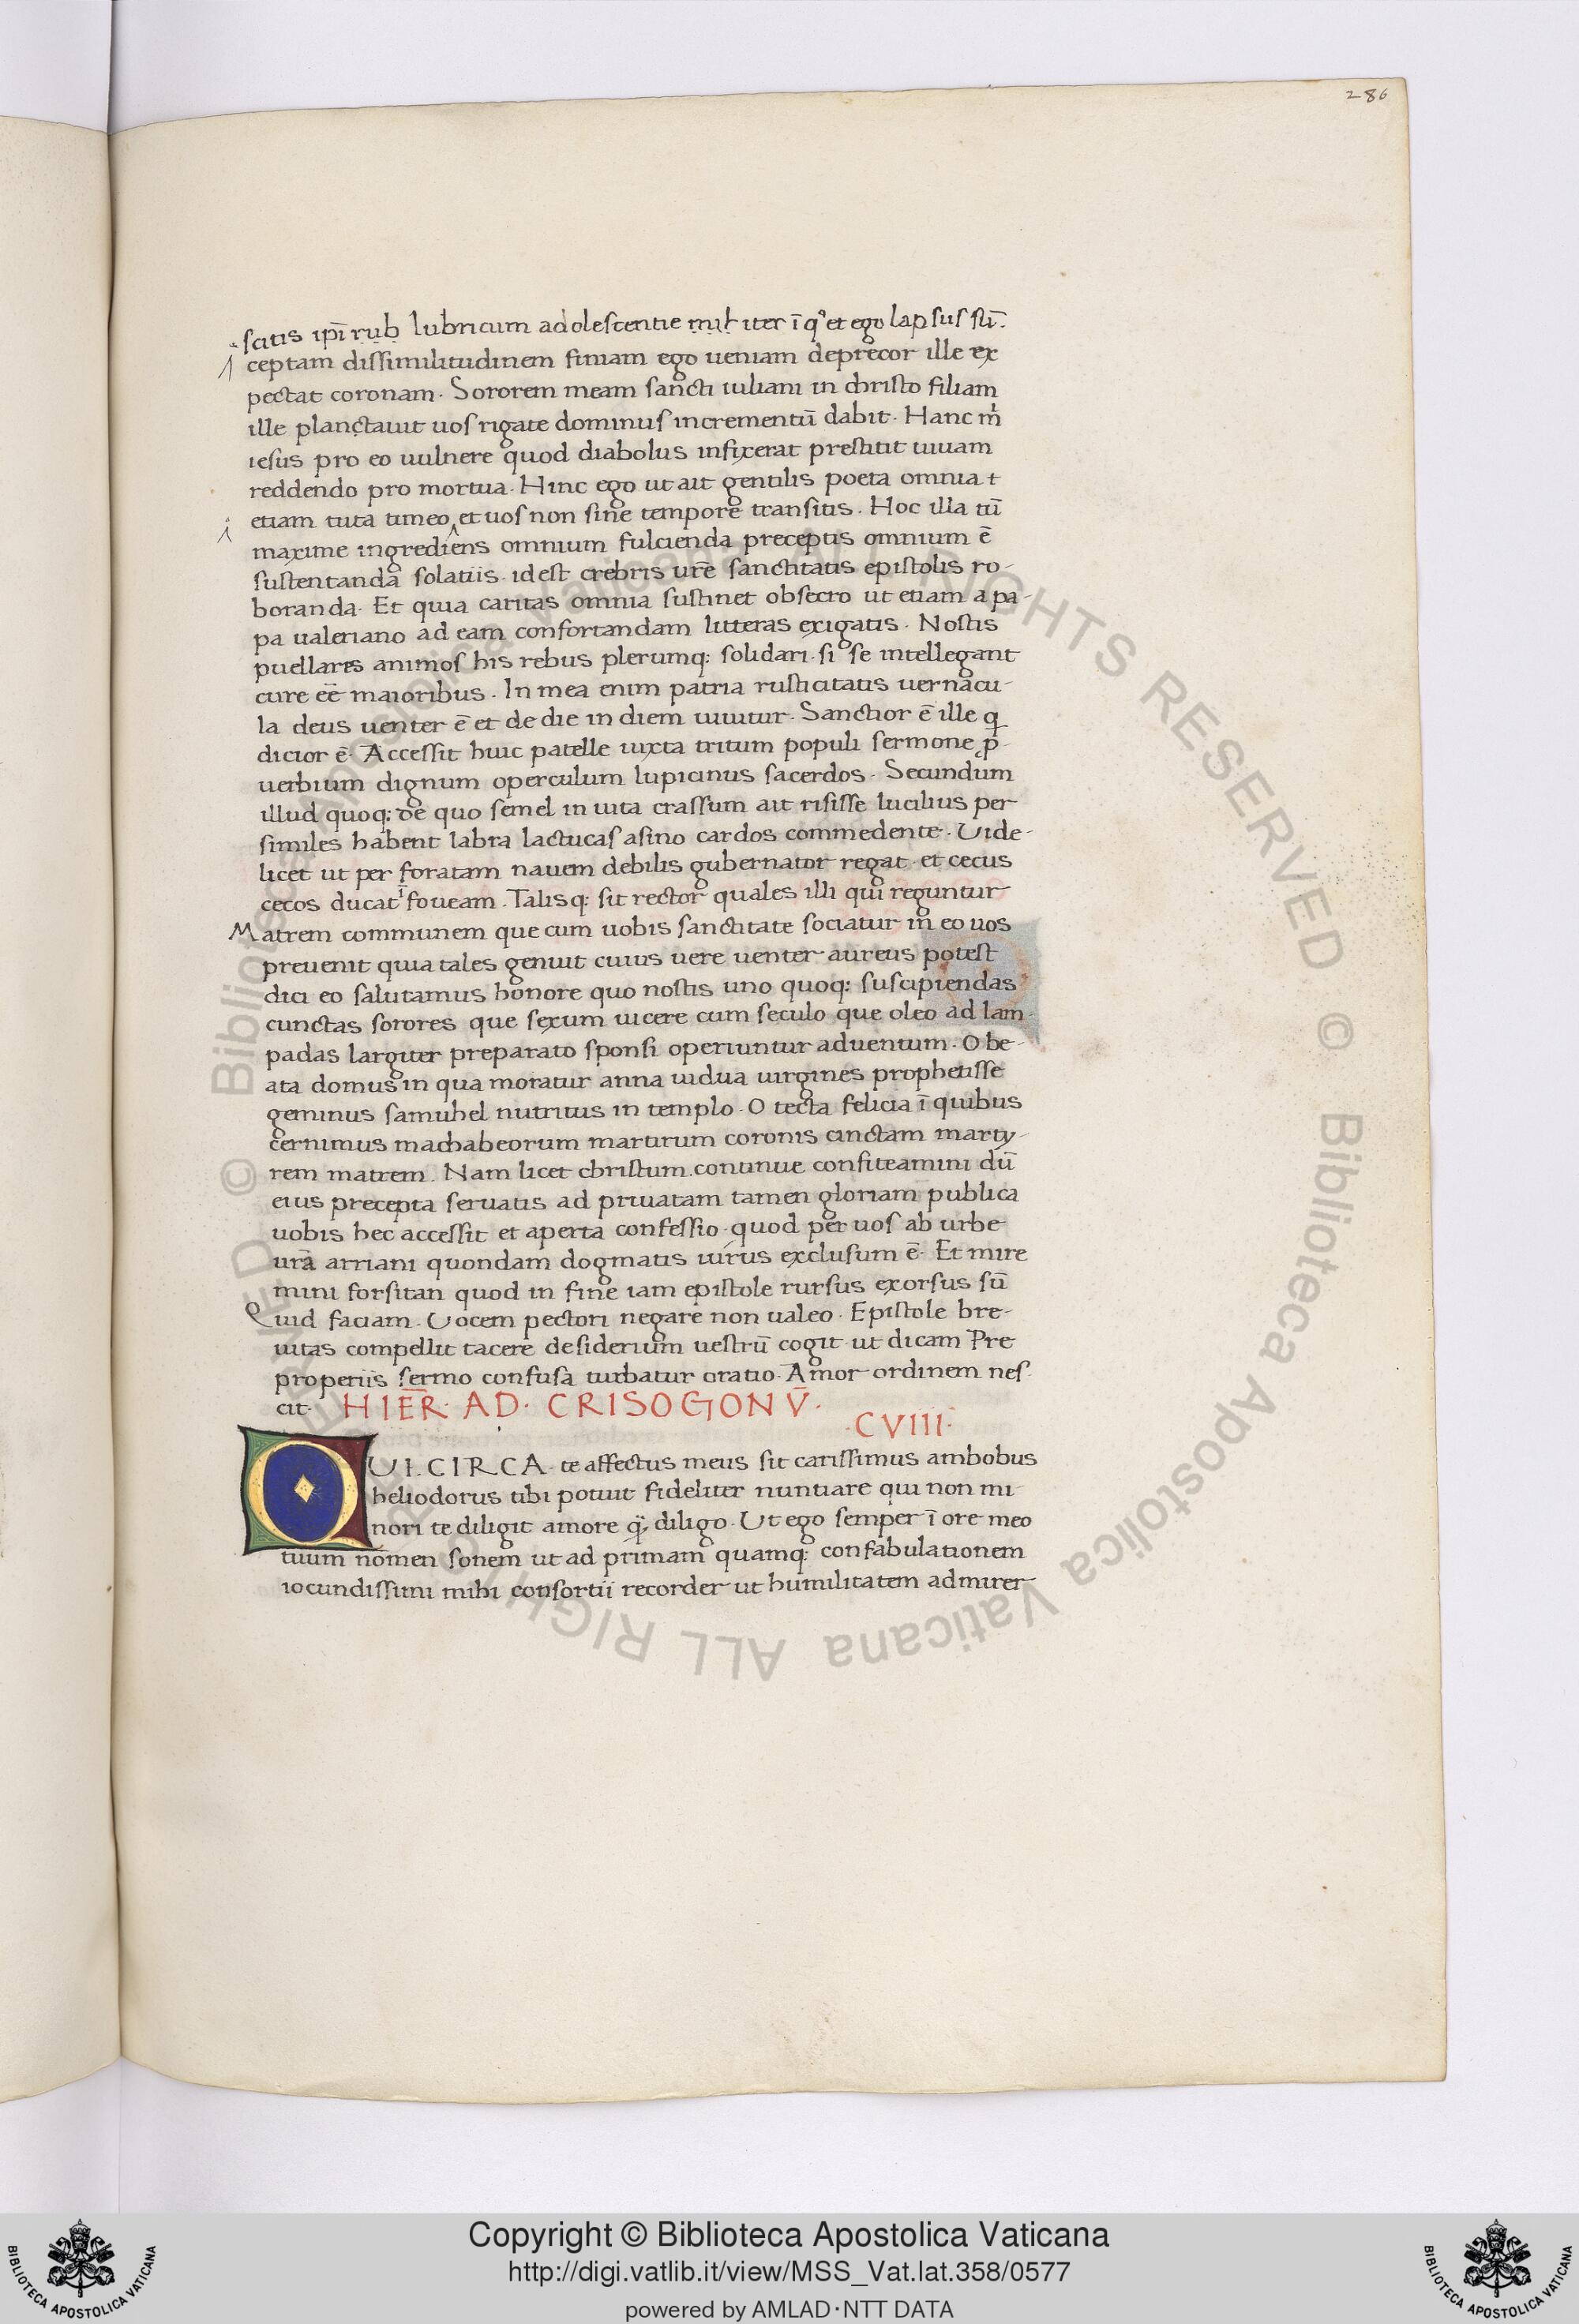 286
scitis ipī rub lubricum adolescentie mihi iter ī qͦ et ego lapsus sū.
ceptam dissimilitudinem finiam ego ueniam deprecor ille ex
pectat coronam. Sororem meam sancti iuliani in christo filiam
ille planctauit uos rigate dominus incrementū dabit. Hanc m̄
iesus pro eo uulnere quod diabolus infixerat prestitit uiuam
reddendo pro mortua. Hinc ego ut ait gentilis poeta omnia
etiam tuta timeo et uos non sine tempore transitis. Hoc illa tū
i
maxime ingrediens omnium fulcienda preceptis omnium ē
sustentanda solatiis. idest crebris ur̄e sanctitatis epistolis ro-
boranda. Et quia caritas omnia sustinet obsecro ut etiam a pa-
pa ualeriano ad eam confortandam litteras exigatis. Nostis
puellares animos his rebus plerumq: solidari. si se intellegant
cure eē maioribus. In mea enim patria rusticitatis uernacu-
la deus uenter ē et de die in diem uiuitur. Sanctior ē ille q
dicior ē. Accessit huic patelle iuxta tritum populi sermone p̄-
uerbium dignum operculum lupicinus sacerdos. Secundum
illud quoq: de quo semel in uita crassum ait risisse lucilius per
similes habent labra lactucas asino cardos commedente. Uide-
licet ut per foratam nauem debilis gubernator regat. et cecus
cecos ducat ī foueam. Talisq: sit rector quales illi qui reguntur
Matrem communem que cum uobis sanctitate sociatur in eo uos
preuenit quia tales genuit cuius uere uenter aureus potest
dici eo salutamus honore quo nostis uno quoq: suscipiendas
cunctas sorores que sexum uicere cum seculo que oleo ad lam-
padas largiter preparato sponsi operiuntur aduentum. O be-
ata domus in qua moratur anna uidua uirgines prophetisse
geminus samuhel nutritus in templo. O tecta felicia ī quibus
cernimus machabeorum martirum coronis cinctam marty-
rem matrem. Nam licet christum continue confiteamini dū
eius precepta seruatis ad priuatam tamen gloriam publica
uobis hec accessit et aperta confessio quod per uos ab urbe
ur̄a arriani quondam dogmatis uirus exclusum ē. Et mire
mini forsitan quod in fine iam epistole rursus exorsus sū
Quid faciam. Uocem pectori negare non ualeo. Epistole bre-
uitas compellit tacere desiderium uestrū cogit ut dicam Pre
properiis sermo confusa turbatur oratio. Amor ordinem nes-
cit. HIER̄. AD. CRISOGONV̄.
.CVIII.
QUI. CIRCA. te affectus meus sit carissimus ambobus
heliodorus tibi potuit fideliter nuntiare qui non mi-
nori te diligit amore q̄ diligo. Ut ego semper ī ore meo
tuum nomen sonem ut ad primam quamq: confabulationem
iocundissimi mihi consortii recorder ut humilitatem admirer
Copyright © Biblioteca Apostolica Vaticana
http://digi.vatlib.it/view/MSS_Vat.lat.358/0577
powered by AMLAD·NTT DATA
BIBLIOTECA APOSTOLICA VATICANA
BIBLIOTECA APOSTOLICA VATICANA
© Biblioteca Apostolica Vaticana ALL RIGHTS RESERVED © Biblioteca Apostolica Vaticana ALL RIGHTS RESERVED